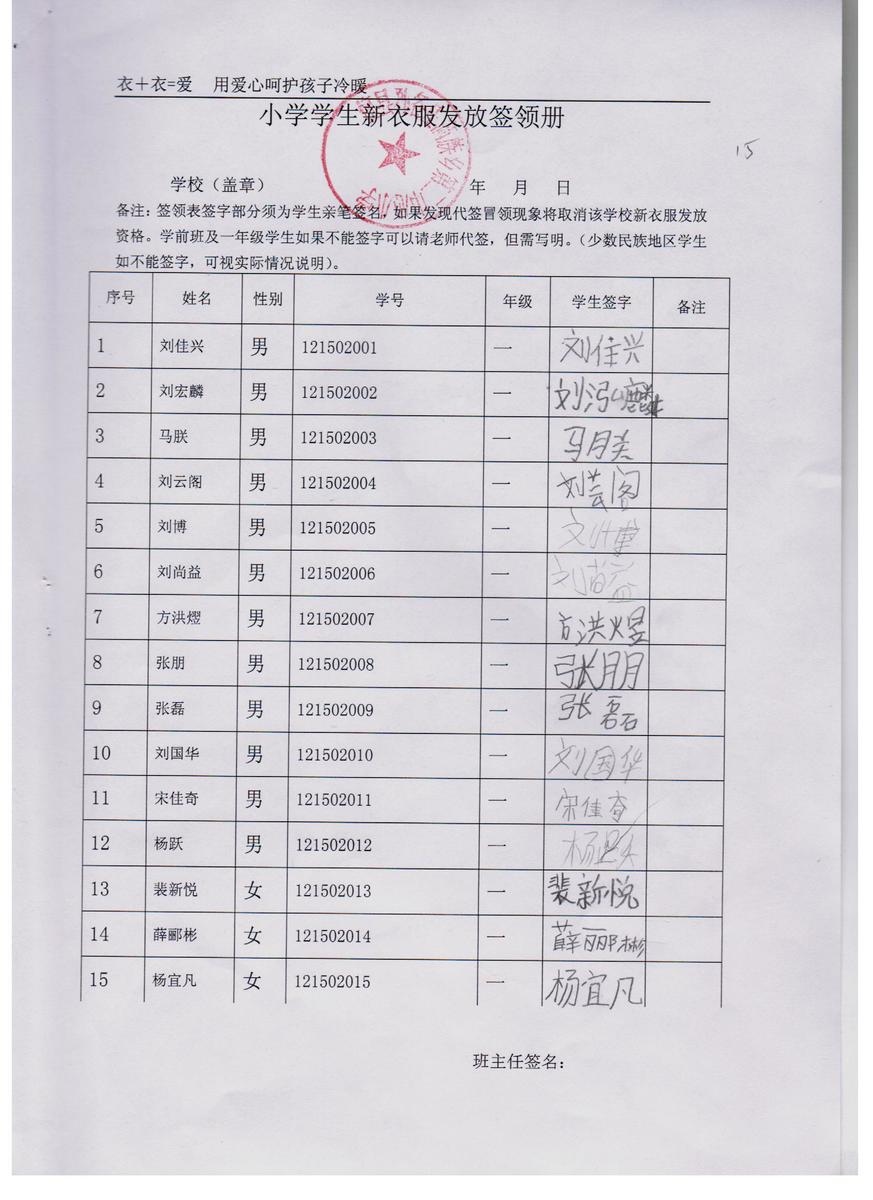 衣＋衣=爱 用爱心呵护孩子冷暖
小学学生新衣服发放签领册
15
学校（盖章） 年 月 日
备注：签领表签字部分须为学生亲笔签名，如果发现代签冒领现象将取消该学校新衣服发放
资格。学前班及一年级学生如果不能签字可以请老师代签，但需写明。（少数民族地区学生
如不能签字，可视实际情况说明）。
序号 姓名 性别 学号 年级 学生签字 备注
1 刘佳兴 男 121502001 一 刘佳兴
2 刘宏麟 男 121502002 一 刘
3 马朕 男 121502003 一 马朕
4 刘云阁 男 121502004 一 刘芸阁
5 刘博 男 121502005 一 刘博
6 刘尚益 男 121502006 一 刘尚益
7 方洪熠 男 121502007 一 方洪煜
8 张朋 男 121502008 一 张朋
9 张磊 男 121502009 一 张磊
10 刘国华 男 121502010 一 刘国华
11 宋佳奇 男 121502011 一 宋佳奇
12 杨跃 男 121502012 一 杨跃
13 裴新悦 女 121502013 一 裴新悦
14 薛郦彬 女 121502014 一 薛郦彬
15 杨宜凡 女 121502015 一 杨宜凡
班主任签名：